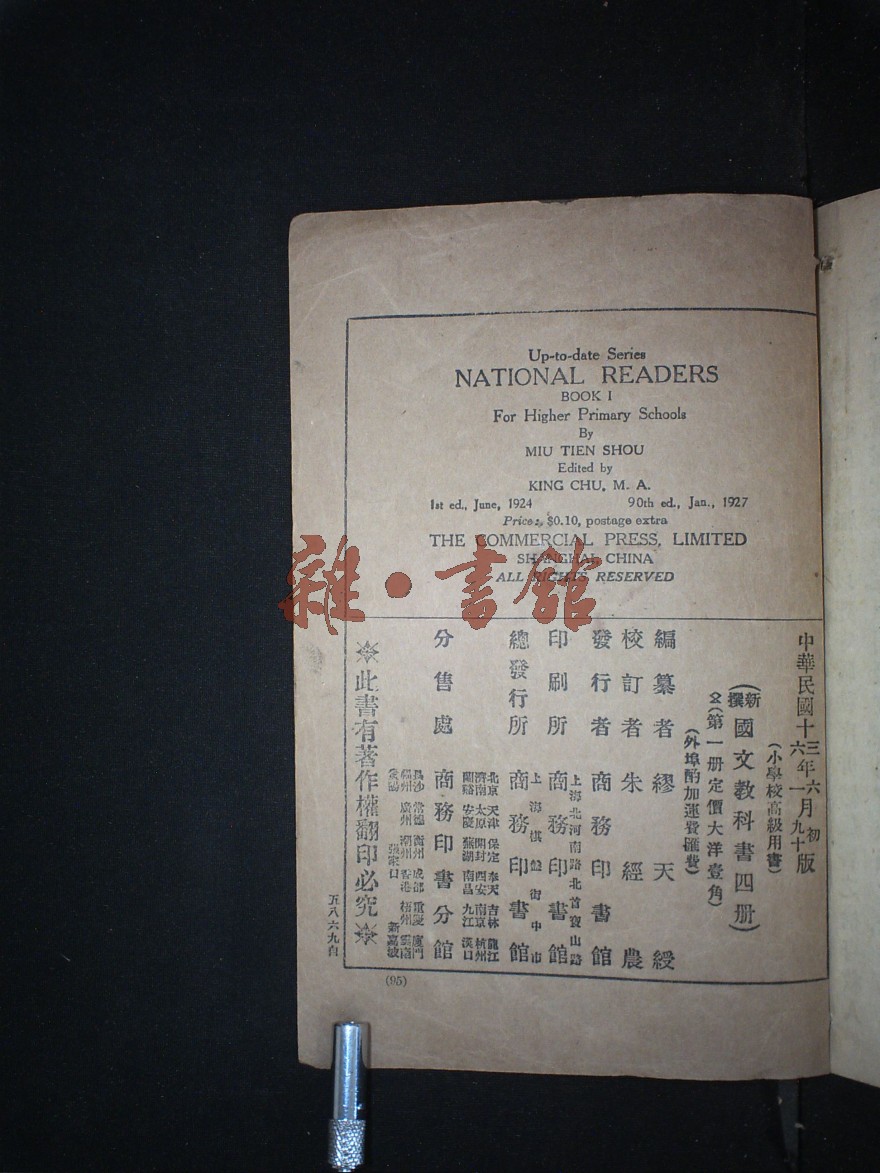 Up-to-date Series
NATIONAL READERS
BOOK I
For Higher Primary Schools
By
MIU TIEN SHOU
Edited by
KING CHU, M. A.
1st ed., June, 1924 90th ed., Jan., 1927
Price: $0.10, postage extra
THE COMMERCIAL PRESS, LIMITED
SHANGHAI, CHINA
ALL RIGHTS RESERVED
雜·書館
中華民國十三年六月初版
六年一月九十版
(小學校高級用書)
(新撰國文教科書四册)
(第一册定價大洋壹角)
(外埠酌加運費匯費)
編纂者 繆天綬
校訂者 朱經農
發行者 商務印書館
上海北河南路北首寶山路
印刷所 商務印書館
上海棋盤街中市
總發行所 商務印書館
北京 天津 保定 奉天 吉林 龍江
濟南 太原 開封 西安 南京 杭州
蘭谿 安慶 蕪湖 南昌 九江 漢口
分售處 商務印書分館
長沙 常德 衡州 成都 重慶 廈門
福州 廣州 潮州 香港 梧州 雲南
張家口 新嘉坡
此書有著作權翻印必究
五八六九自
(95)